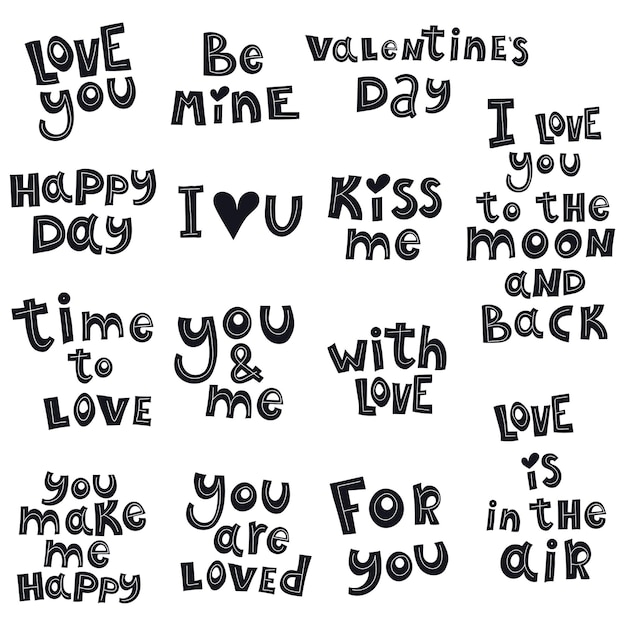 LOVE
you
Be
MiNE
ValeNtiNe's
Day
I LOVE
you
to tHe
mOON
aND
BacK
Happy
Day
I ♥ U
Kiss
me
time
to
LOVE
you
&
me
with
LOVE
LOVE
is
in tHe
aiR
you
make
me
Happy
you
are
LOVed
FOR
you